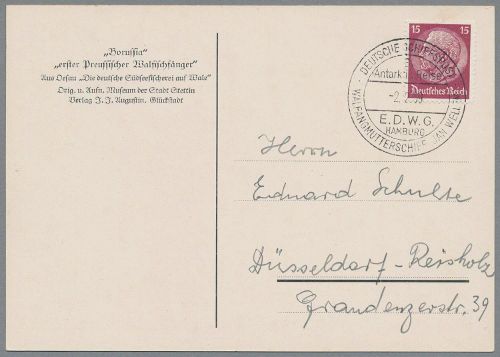 „Borussia"
„erster Preussischer Walfischfänger"
Aus Oesau „Die deutsche Südseefischerei auf Wale"
Orig. u. Aufn. Museum der Stadt Stettin
Verlag J. J. Augustin, Glückstadt
15 15
Deutsches Reich
DEUTSCHE SCHIFFSPOST
Antarktis-Reise
E.D.W.G.
HAMBURG
WALFANGMUTTERSCHIFF JAN WELLEM
Herrn
Eduard Schulte
Düsseldorf-Reisholz
Grandenzerstr. 39